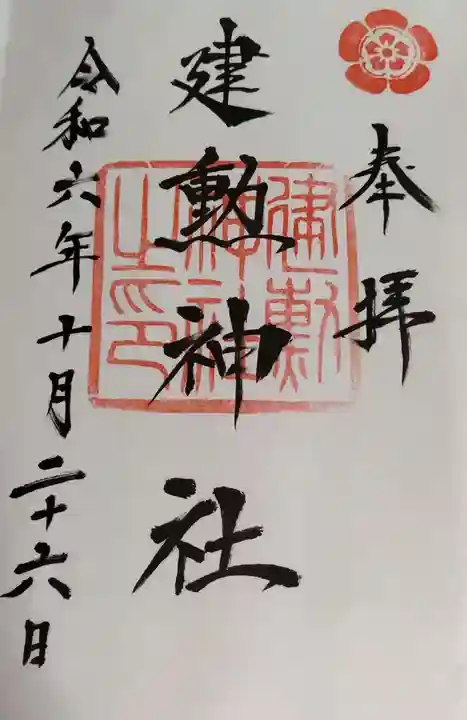 奉拝
建勲神社
建勲神社之印
令和六年十月二十六日